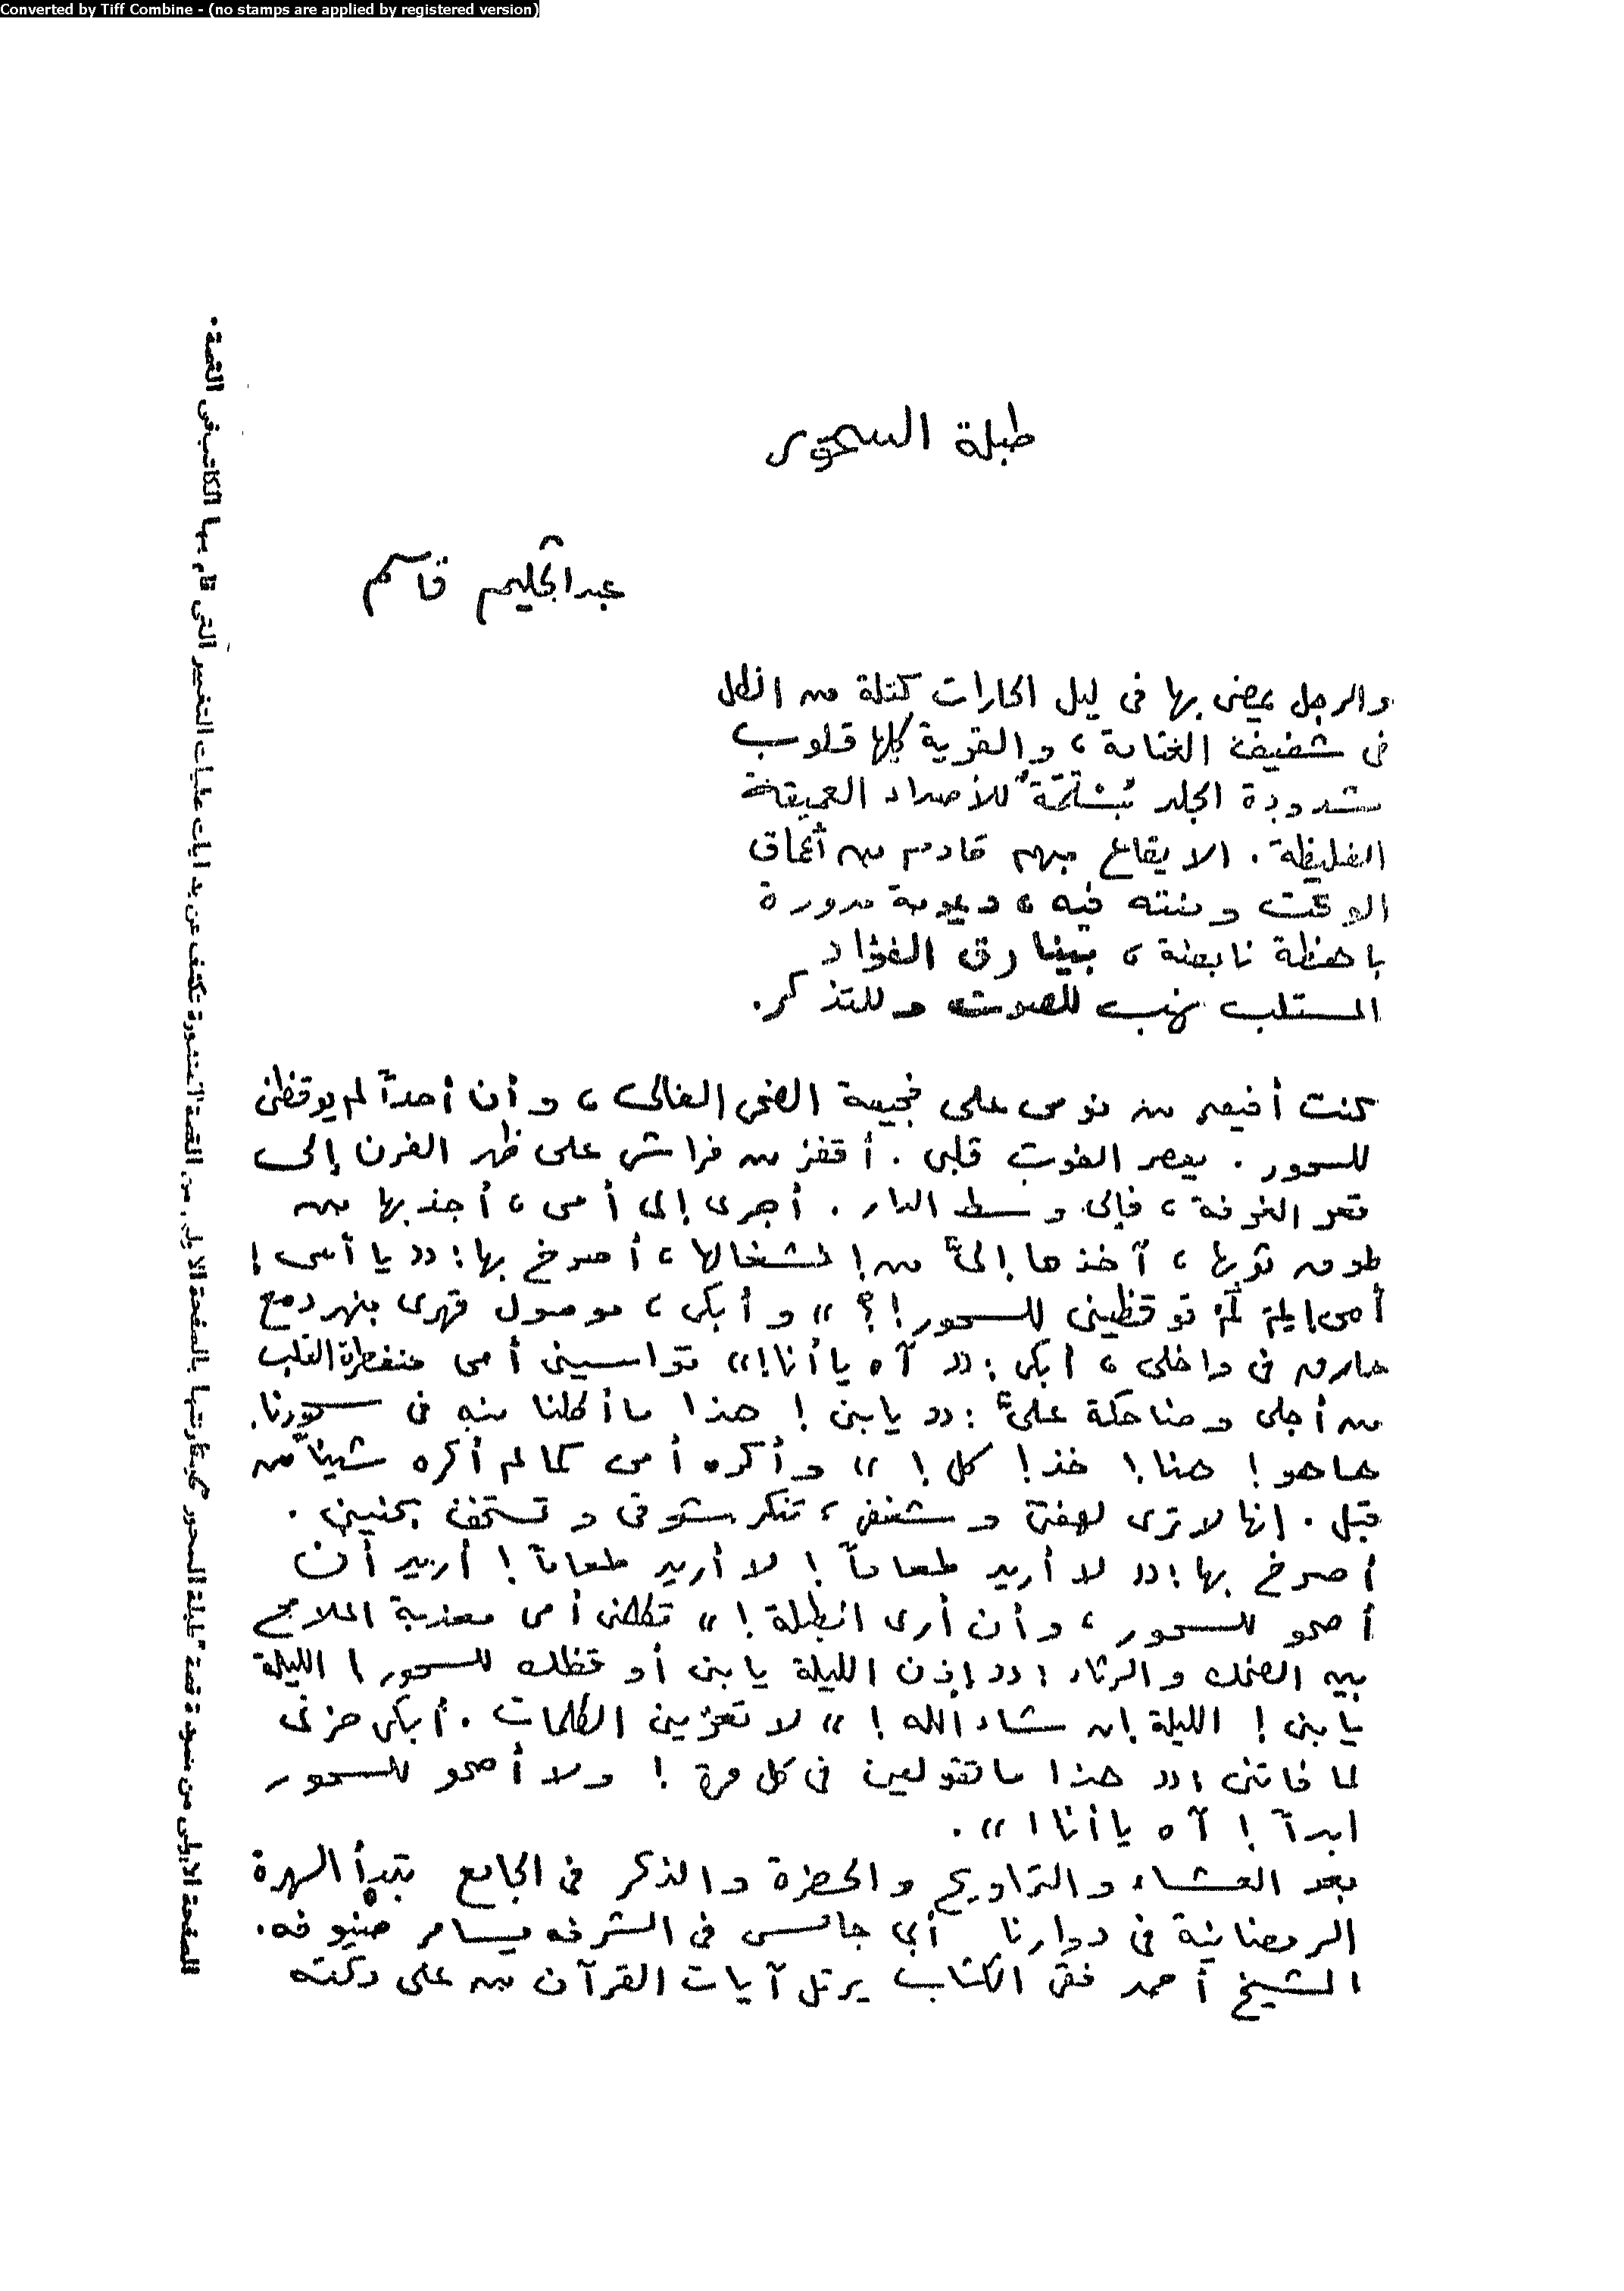 Converted by Tiff Combine - (no stamps are applied by registered version)
طبلة السحور
عبد الحكيم قاسم
والرجل يمضى بها فى ليل الحارات كتلة من الظل
فى شفيف العتامة، والقرية كلها قلوب
مشدودة الجلد للأصداء العميقة
الغليظة. الإيقاع مبهم قادم من أعماق
الوقت ومنته فيه، ديمومة مدورة
باهظة نابضة، بينا رق الفؤاد
المستلب نهب للصوت وللتذكر.
كنت أفيق من نومى على فجيعة الضحى العالى، وأن أحداً لم يوقظنى
للسحور. يعصر الفوت قلبى. أقفز من فراشى على ظهر الفرن إلى
قعر الغرفة، فإلى وسط الدار. أجرى إلى أمى، أجذبها من
طوق ثوبها، آخذها إلىّ من انشغالها، أصرخ بها: «يا أمى!
أمى! لم لم توقظينى للسحور!؟» وأبكى، موصول قهرى بنهر دمع
حارق فى داخلى، أبكى: «آه يا أنا!» تواسينى أمى منفطرة القلب
من أجلى وضاحكة علىّ: «يابنى! هذا ما أكلنا منه فى سحورنا.
هاهو! هنا! خذ! كل!» وأكره أمى كما لم أكره شيئاً من
قبل. إنها لا ترى لهفتى وشغفى، تنكر شوقى وتستخف بحنينى.
أصرخ بها: «لا أريد طعاماً! لا أريد طعاماً! أريد أن
أصحو للسحور، وأن أرى الطبلة!» تكلمنى أمى معذبة الملامح
بين الضحك والرثاء: «إذن الليلة يا بنى أوقظك للسحور! الليلة
يا بنى! الليلة إن شاء الله!» لا تعزينى الكلمات. أبكى حزنى
لما فاتنى: «هذا ما تقولين فى كل مرة! ولا أصحو للسحور
أبداً! آه يا أنا!».
بعد العشاء والتراويح والحضرة والذكر فى الجامع تبدأ السهرة
الرمضانية فى دوارنا أبى جالس فى الشرفه يسامر ضيوفه.
الشيخ أحمد فقى الكتاب يرتل آيات القرآن من على دكته
الصفحة الأولى من مسودة قصة "طبلة السحور" يمكن مقارنتها بالصفحة الأولى من القصة المنشورة تكشف عن بدايات عمليات التغيير التى قام بها الكاتب فى القصة.